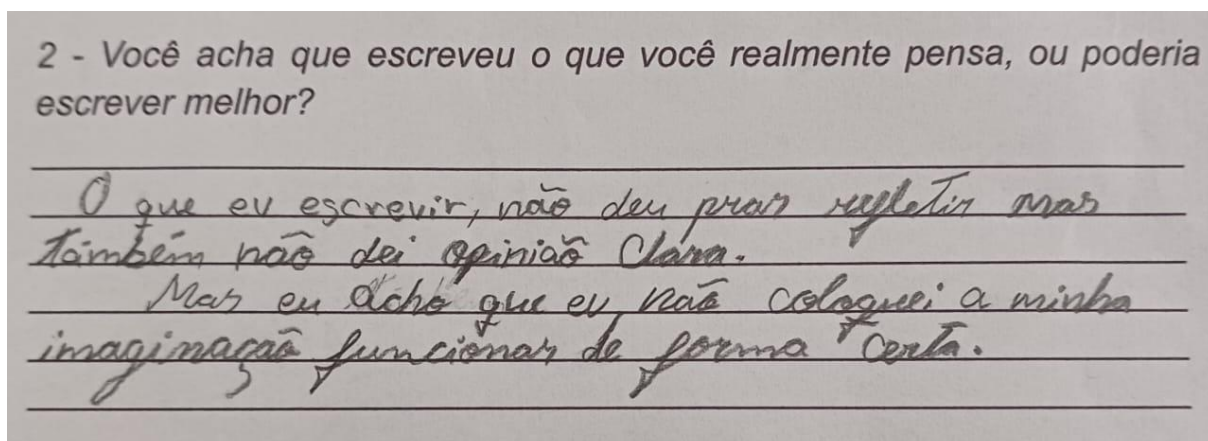 2 - Você acha que escreveu o que você realmente pensa, ou poderia
escrever melhor?
O que eu escrevir, não deu prar refletir mas
também não dei opinião Clara.
Mas eu acho que eu, não coloquei a minha
imaginação funcionar de forma certa.